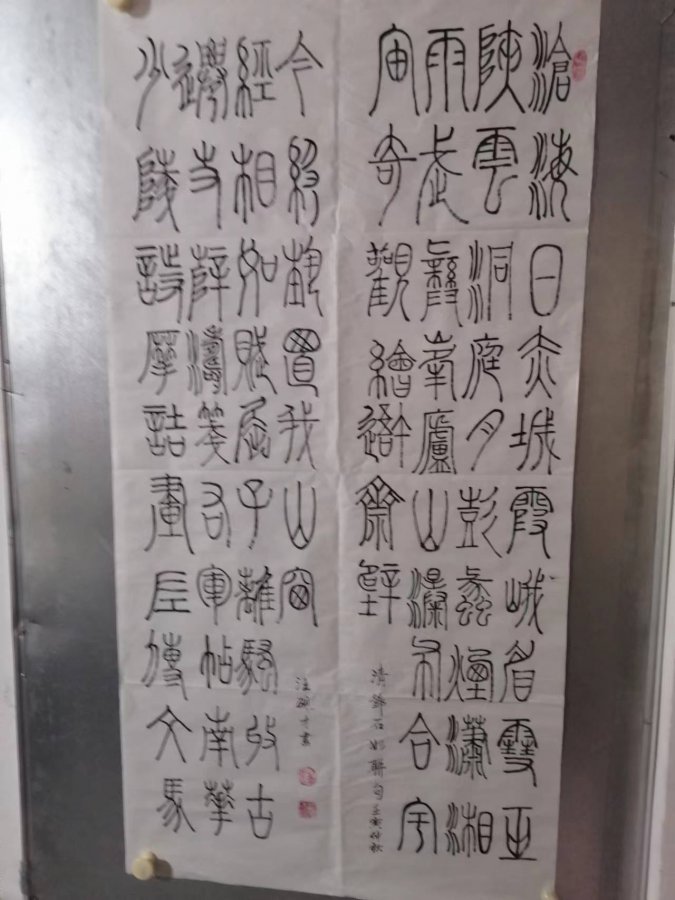 滄海日赤城霞峨眉雪巫
陜雲洞庭月彭蠡煙瀟湘
雨武夷峯廬山瀑布合宇
宙奇觀繪吾齋壁
清鄧石如聯句壬寅仲秋
少陵詩摩詰畫左傳文馬
遷史薛濤箋右軍帖南華
經相如賦屈子離騷收古
今絕藝置我山窗
書